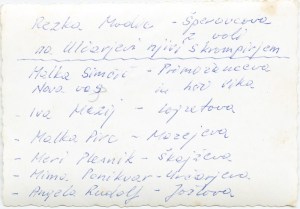 Rezka Modic - Šperovčova
z voli
na Učiarjevi njivi s krompirjem
Malka Simčič - Primožančeva
Nova vas in hči Vika
- Iva Mežij - Lojzetova
- Malka Pirc - Mazejeva
- Meri Plesnik - Škojževa
- Mima Ponikvar -
- Angela Rudolf - Jožtova